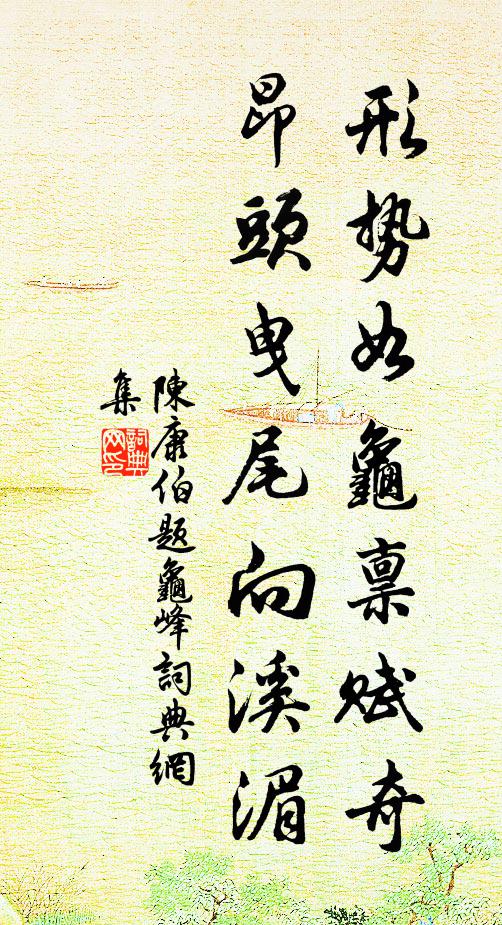 形勢如龜禀賦奇
昂頭曳尾向溪湄
陳康伯題龜峰詞典網
集
詞典
网印